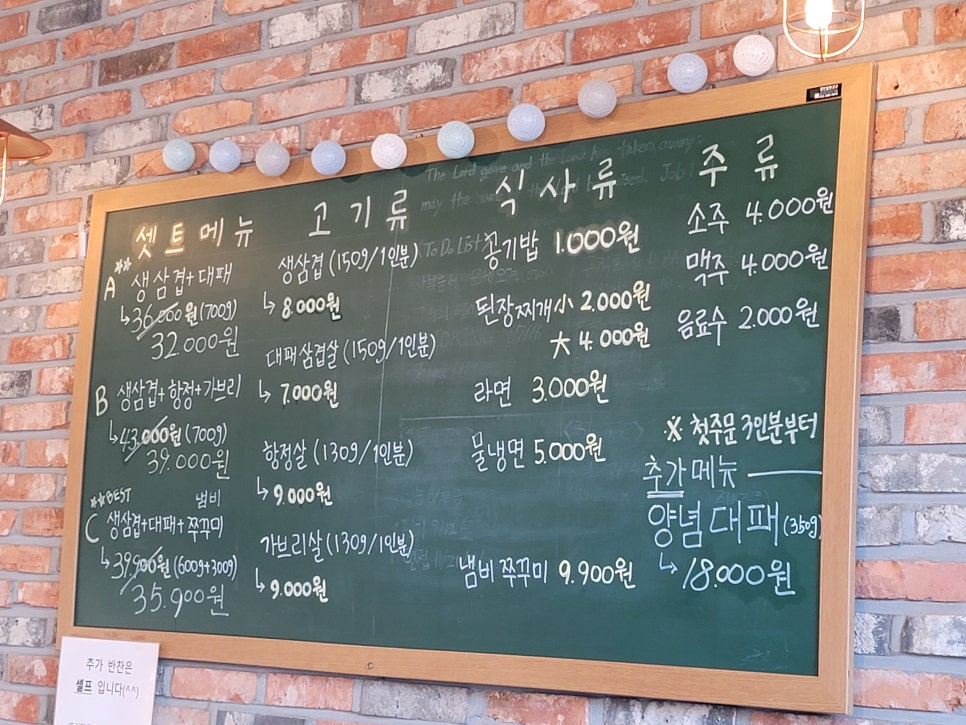 The Lord gave and the Lord has taken away
may the
Job 1
To Do List
셋트메뉴
A 생삼겹+대패
↳ 36.000원 (700g)
32.000원
B 생삼겹+항정+가브리
↳ 43.000원 (700g)
39.000원
**BEST 냄비
C 생삼겹+대패+쭈꾸미
↳ 39.900원 (600g+300g)
35.900원
고기류
생삼겹 (150g/1인분)
↳ 8.000원
대패삼겹살 (150g/1인분)
↳ 7.000원
항정살 (130g/1인분)
↳ 9.000원
가브리살 (130g/1인분)
↳ 9.000원
식사류
공기밥 1.000원
된장찌개 小 2.000원
大 4.000원
라면 3.000원
물냉면 5.000원
냄비 쭈꾸미 9.900원
주류
소주 4.000원
맥주 4.000원
음료수 2.000원
※ 첫주문 3인분부터
추가메뉴
양념대패 (350g)
↳ 18.000원
추가 반찬은
셀프 입니다(^^)